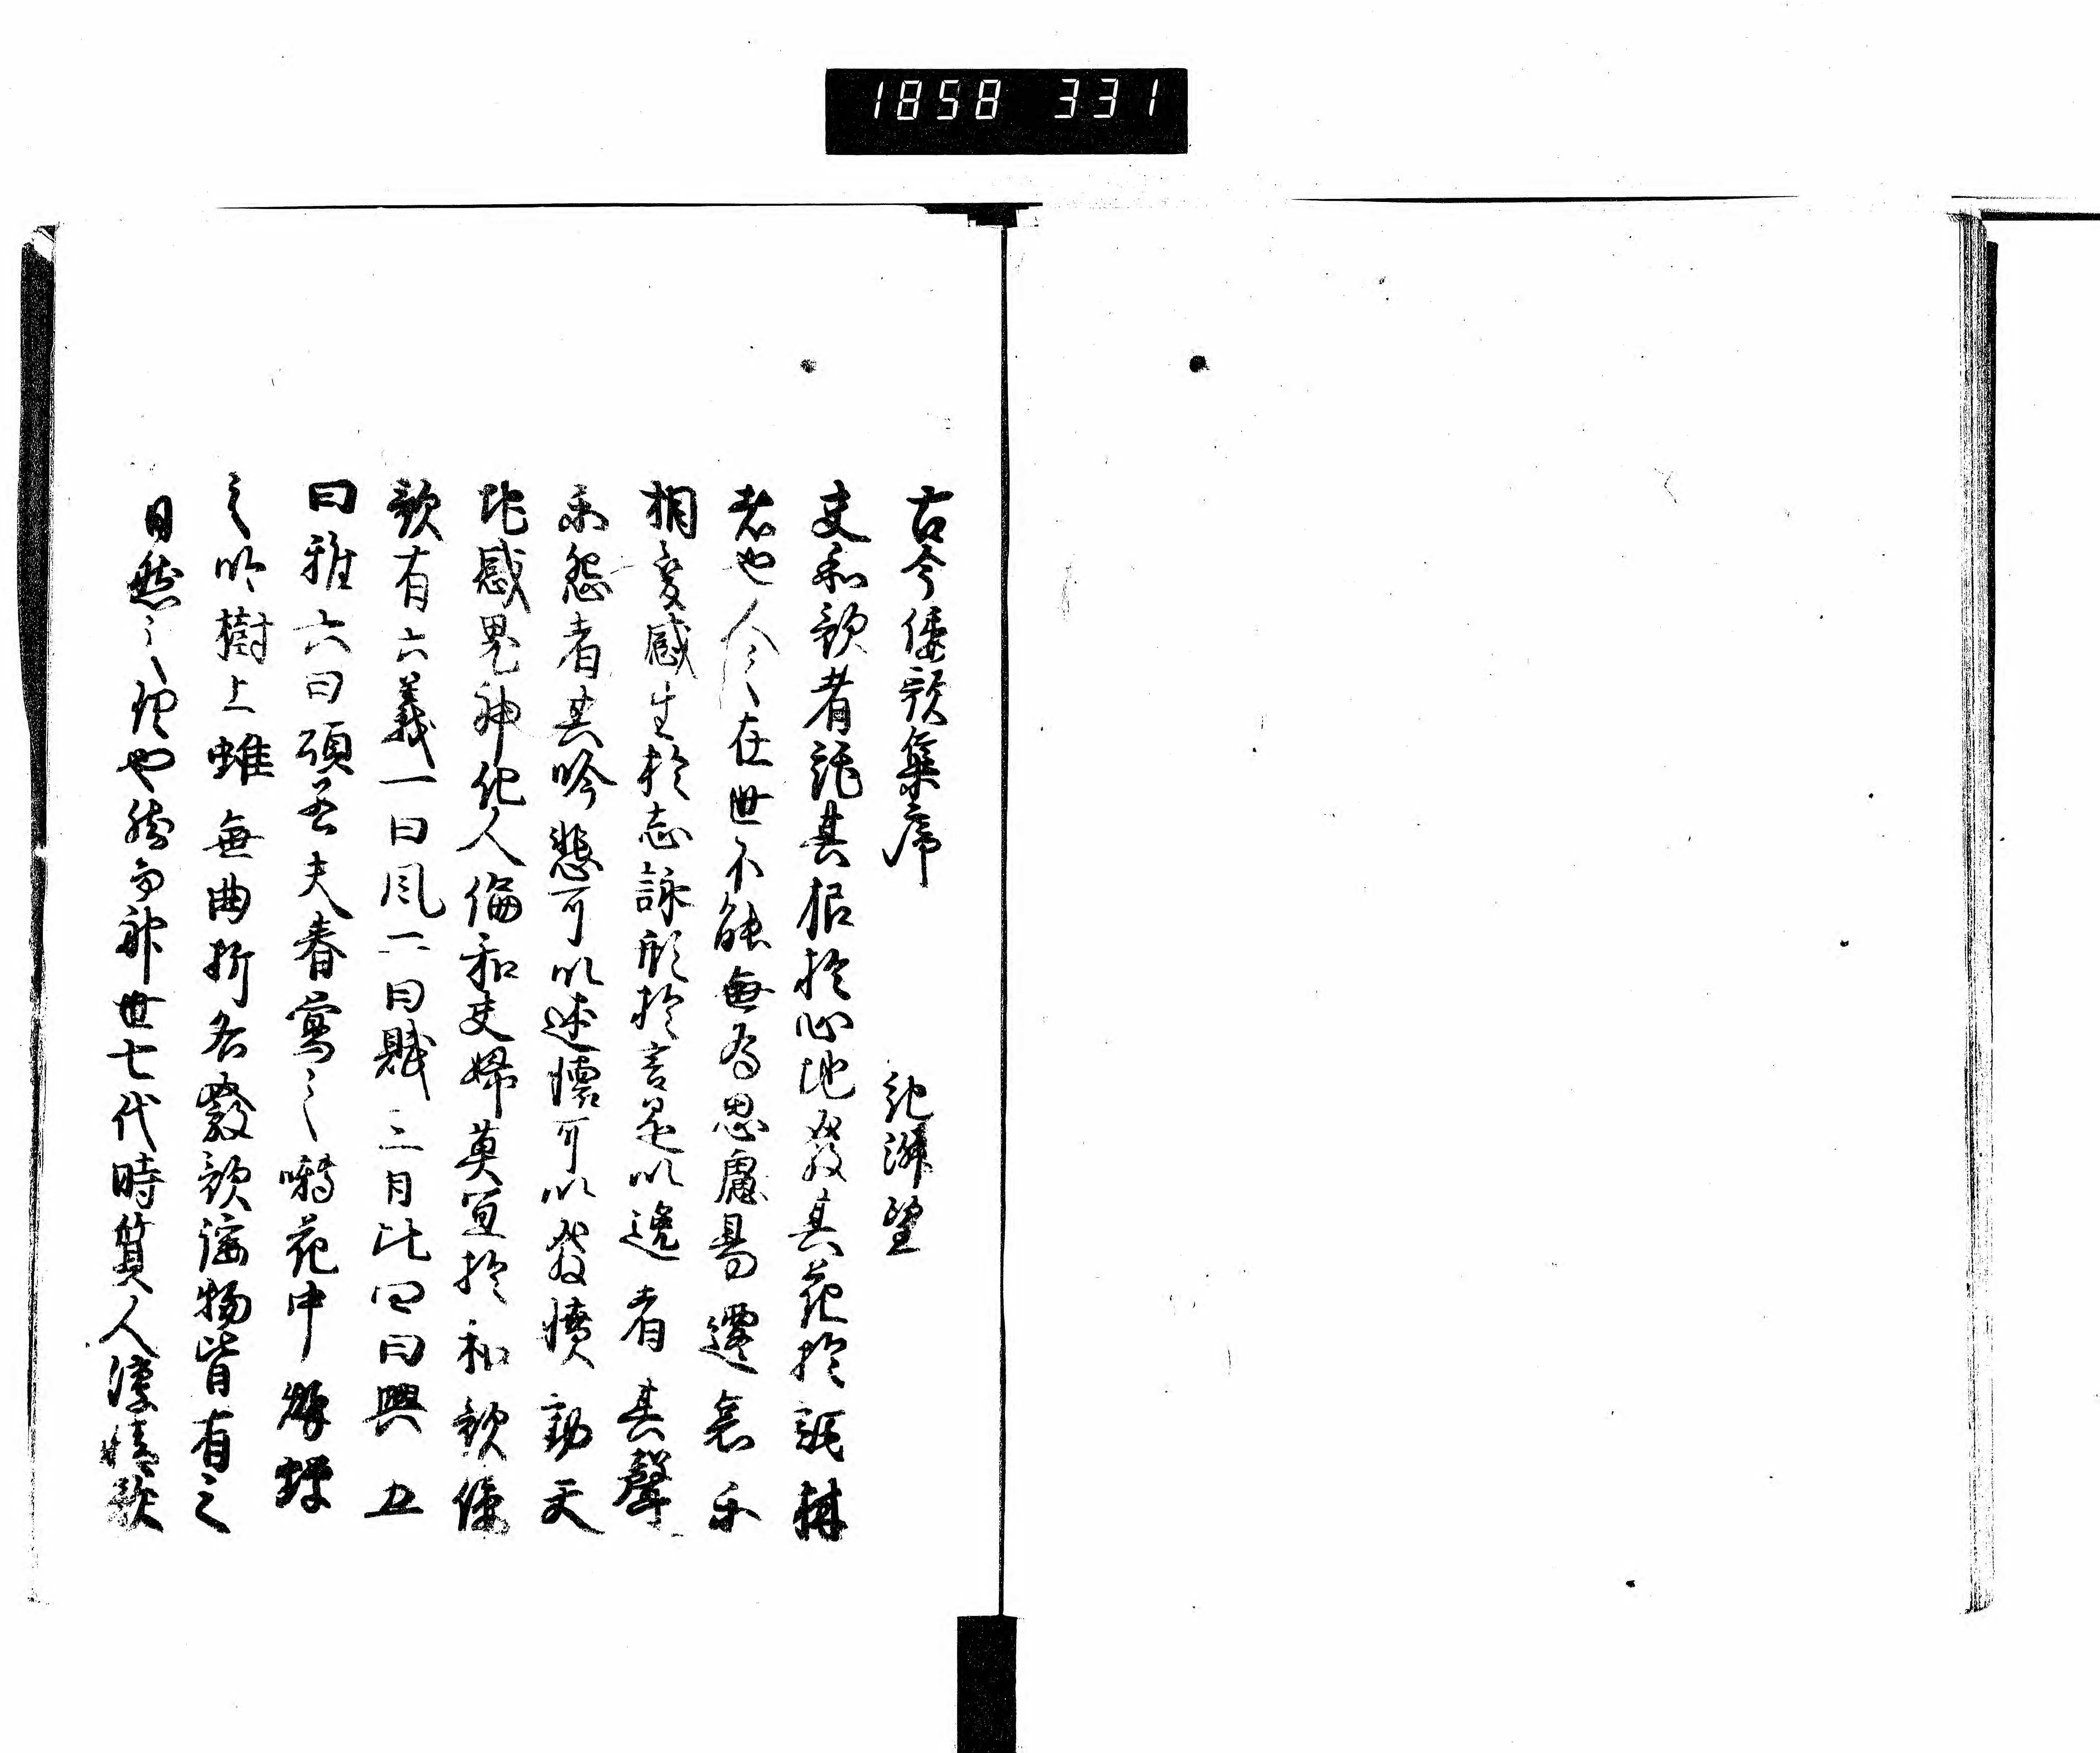 1858 331
古今倭歌集序
紀淑望
夫和歌者託其根於心地發其花於詞林
者也人之在世不能無為思慮易遷哀樂
相變感生於志詠形於言是以逸者其聲
樂怨者其吟悲可以述懷可以發憤動天
地感鬼神化人倫和夫婦莫宜於和歌倭
歌有六義一曰風二曰賦三曰比四曰興五
曰雅六曰頌若夫春鶯之囀花中秋蟬
之吟樹上雖無曲折各發歌謡物皆有之
自然之理也然而神世七代時質人淳情欲